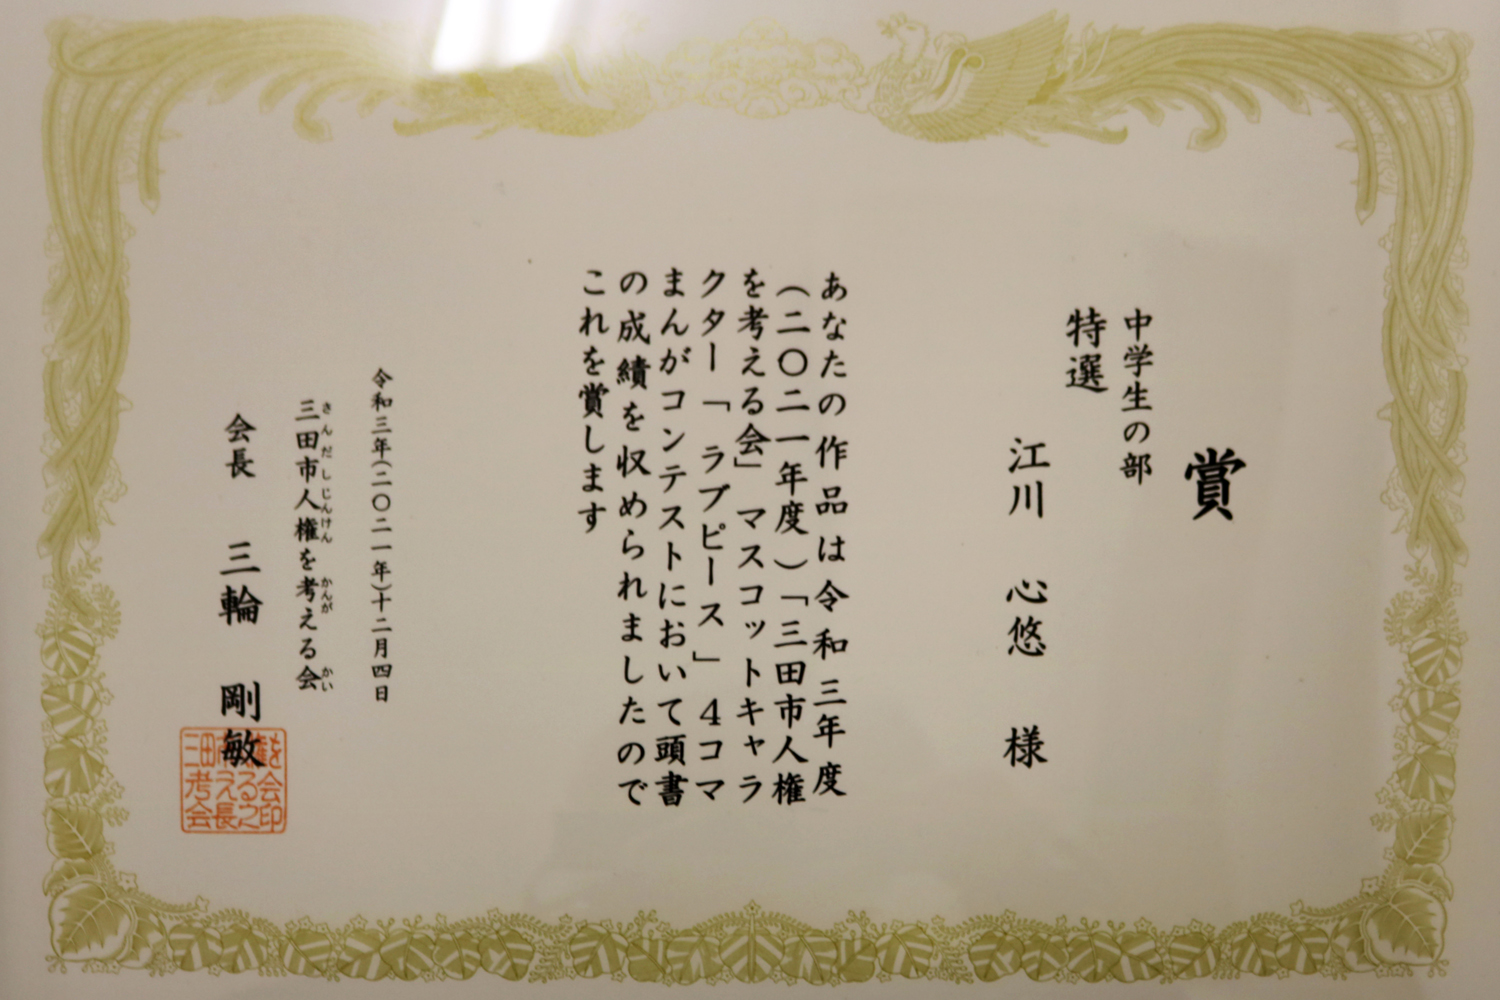 賞
中学生の部
特選
江川 心悠 様
あなたの作品は令和三年度
（二〇二一年度）「三田市人権
を考える会」マスコットキャラ
クター「ラブピース」４コマ
まんがコンテストにおいて頭書
の成績を収められましたので
これを賞します
令和三年（二〇二一年）十二月四日
三田市人権を考える会
さんだしじんけん かんが かい
会長 三輪 剛敏